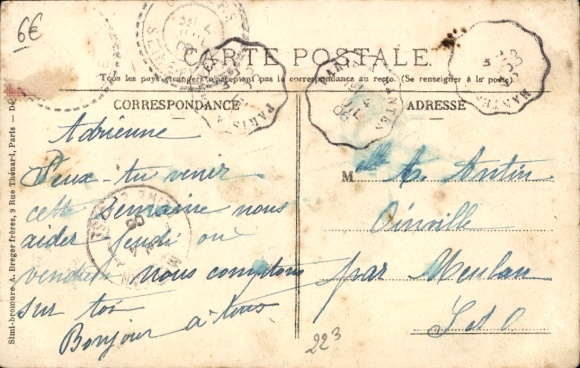 6€
CARTE POSTALE.
Tous les pays étrangers n'acceptent pas la correspondance au recto. (Se renseigner à la poste)
CORRESPONDANCE
ADRESSE
Adrienne
Peux-tu venir
cette semaine nous
aider jeudi ou
vendredi nous comptons
sur toi
Bonjour à tous
Mlle A. Antin
Oinville
par Meulan
S et O
223
Simi-bromure A. Breger frères, 9 Rue Thénard, Paris
PARIS
MANTES